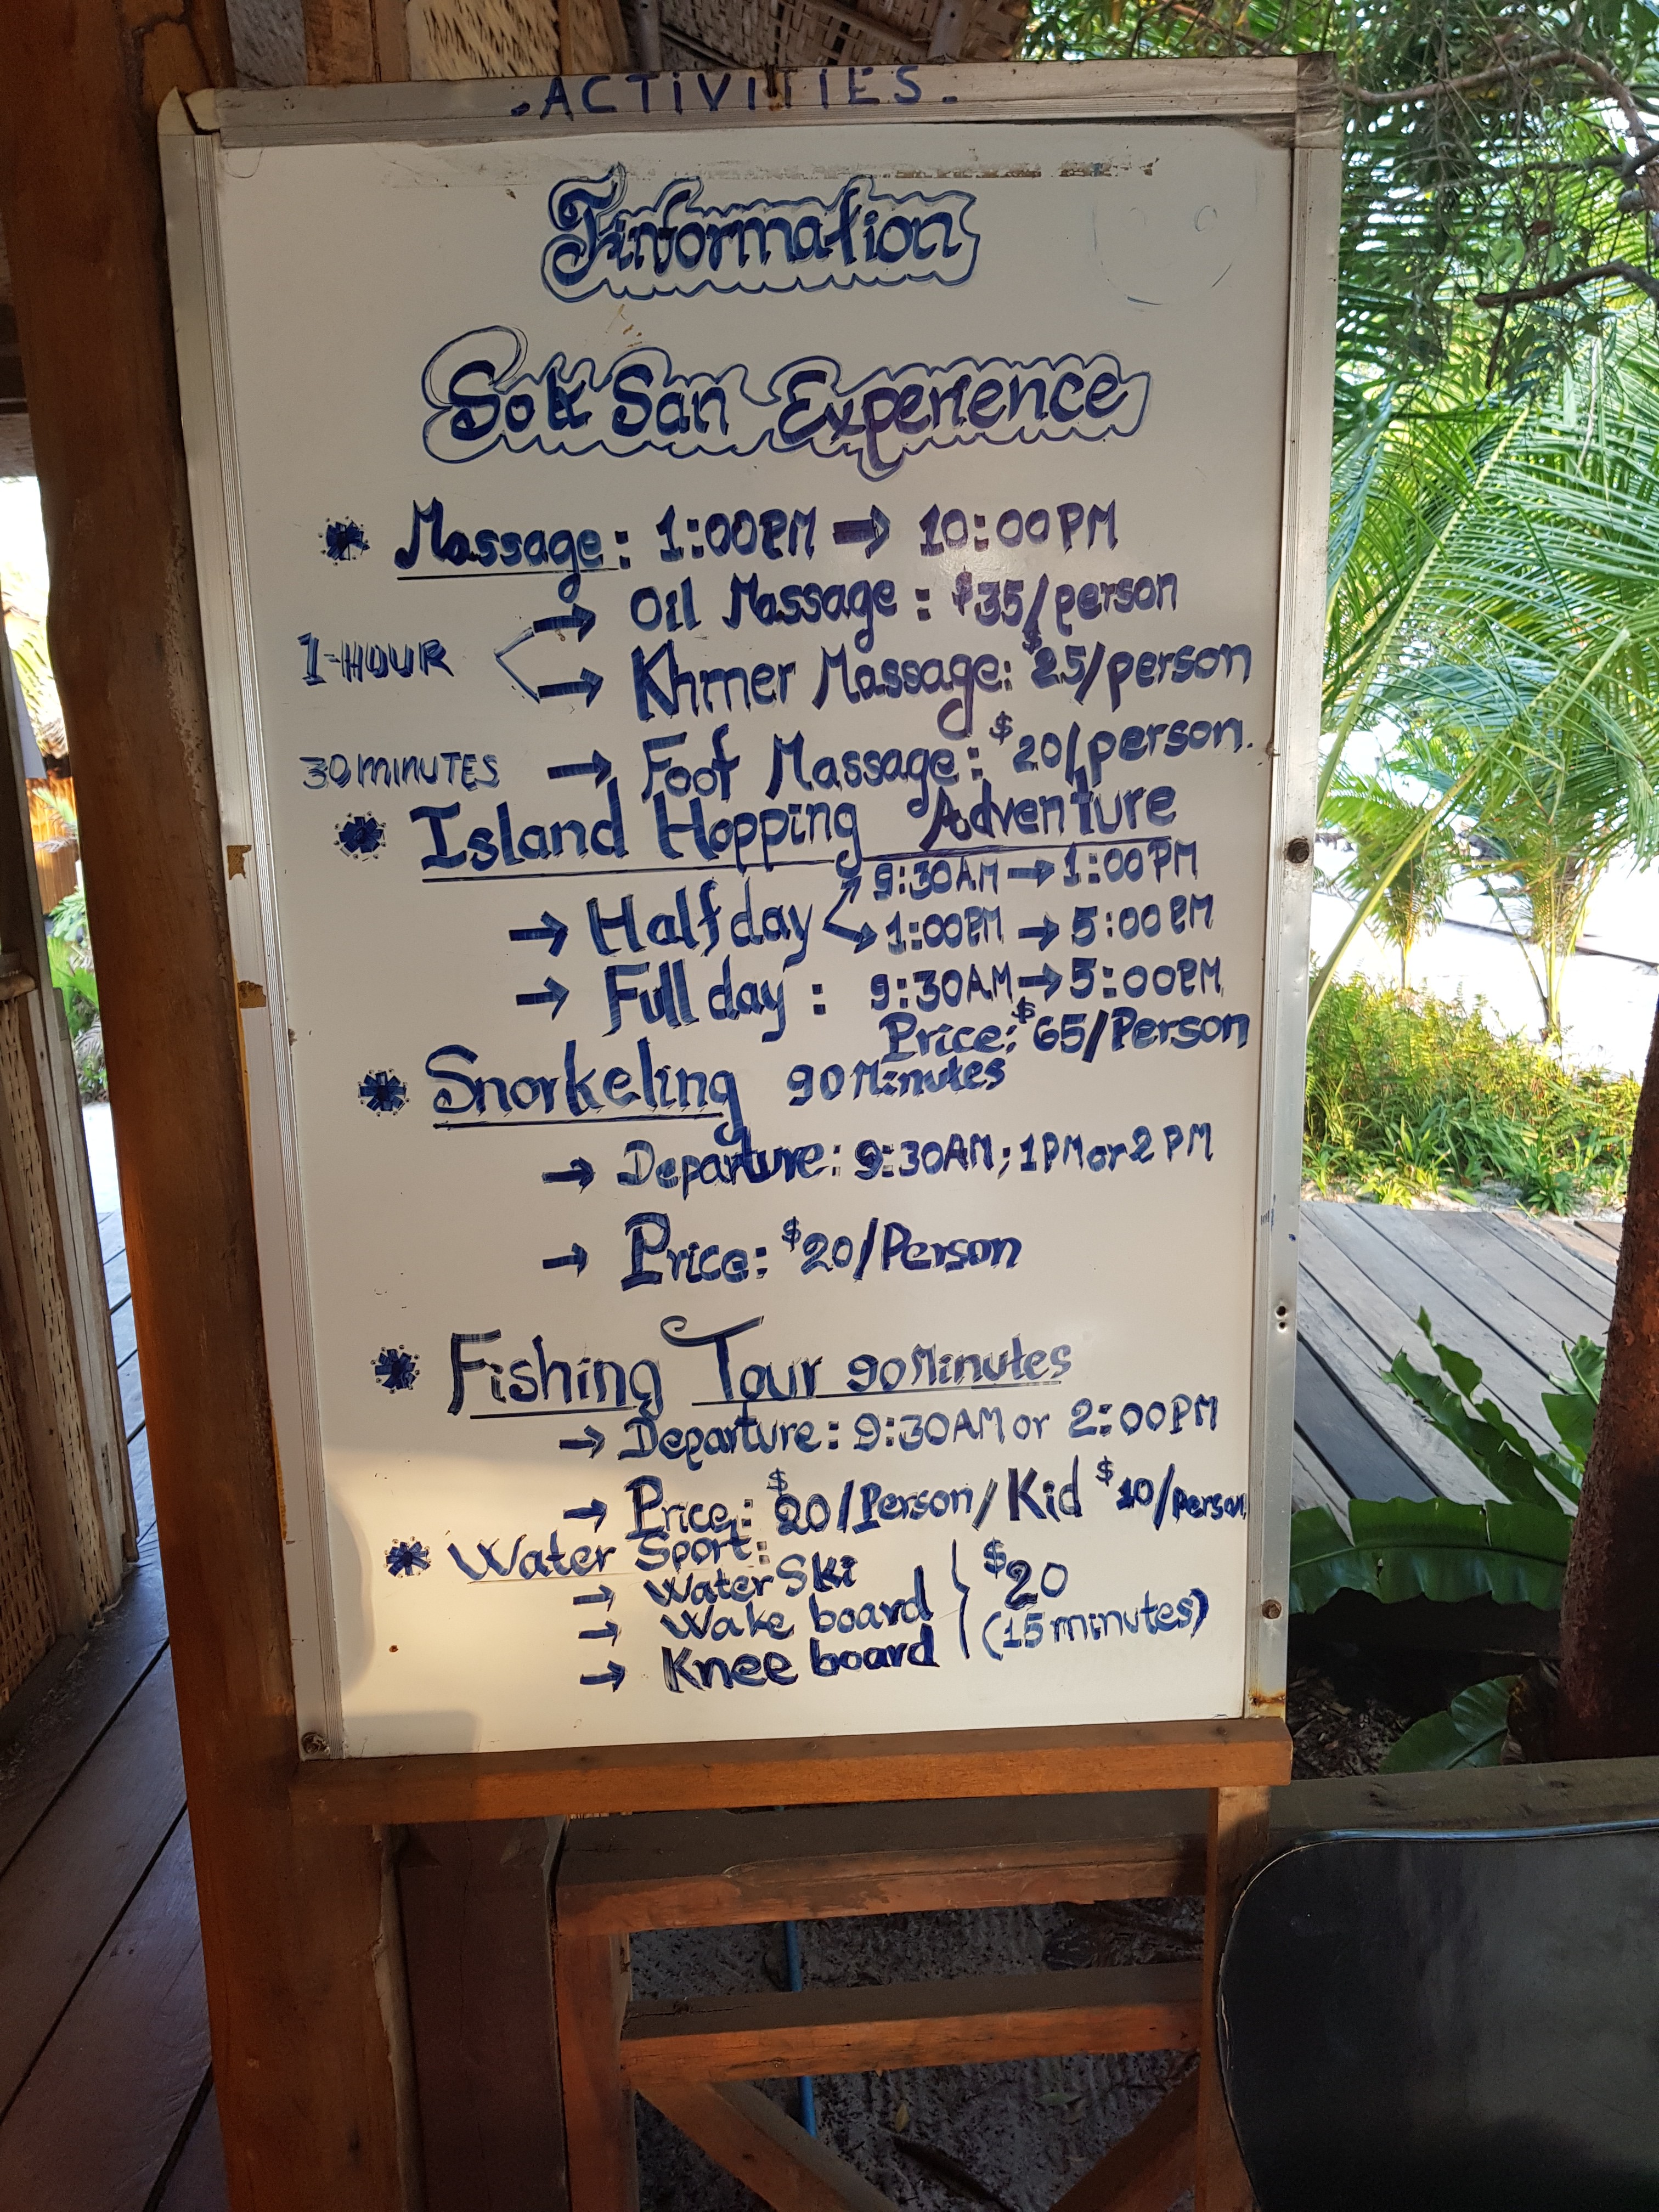 .ACTiVITIES.
Information
Sok San Experience
Massage: 1:00PM → 10:00PM
1-HOUR → Oil Massage: $35/person
→ Khmer Massage: $25/person
30 MINUTES → Foot Massage: $20/person.
Island Hopping Adventure
→ Half day 9:30AM → 1:00PM
1:00PM → 5:00PM
→ Full day: 9:30AM → 5:00PM
Price: $65/Person
Snorkeling 90 Minutes
→ Departure: 9:30AM; 1PM or 2PM
→ Price: $20/Person
Fishing Tour 90 Minutes
→ Departure: 9:30AM or 2:00PM
→ Price: $20/Person/Kid $10/person
Water Sport:
→ Water Ski
→ Wake board } $20
→ Knee board (15 minutes)